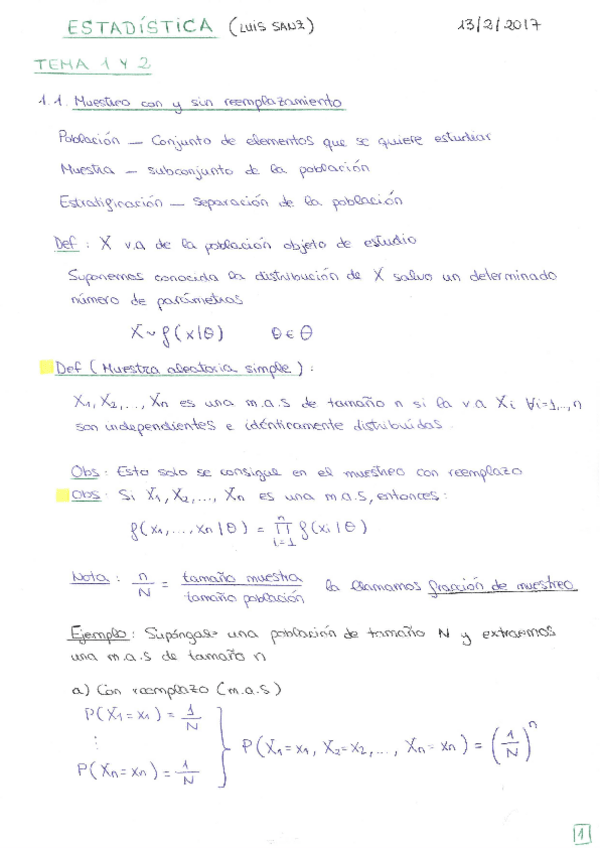 ESTADÍSTICA (LUIS SANZ) 13/2/2017
TEMA 1 Y 2
1.1. Muestreo con y sin reemplazamiento
Población — Conjunto de elementos que se quiere estudiar
Muestra — subconjunto de la población
Estratificación — Separación de la población
Def: X v.a de la población objeto de estudio
Suponemos conocida la distribución de X salvo un determinado
número de parámetros
X ~ f(x|θ) θ ∈ Θ
Def (Muestra aleatoria simple):
X1, X2, ..., Xn es una m.a.s de tamaño n si la v.a Xi ∀i=1,..,n
son independientes e idénticamente distribuidas.
Obs: Esto solo se consigue en el muestreo con reemplazo
Obs: Si X1, X2, ..., Xn es una m.a.s, entonces:
f(x1, ..., xn|θ) = ∏_{i=1}^{n} f(xi|θ)
Nota: n/N = tamaño muestra / tamaño población la llamamos fracción de muestreo
Ejemplo: Supóngase una población de tamaño N y extraemos
una m.a.s de tamaño n
a) Con reemplazo (m.a.s)
P(X1=x1) = 1/N
⋮
P(Xn=xn) = 1/N
} P(X1=x1, X2=x2, ..., Xn=xn) = (1/N)^n
1